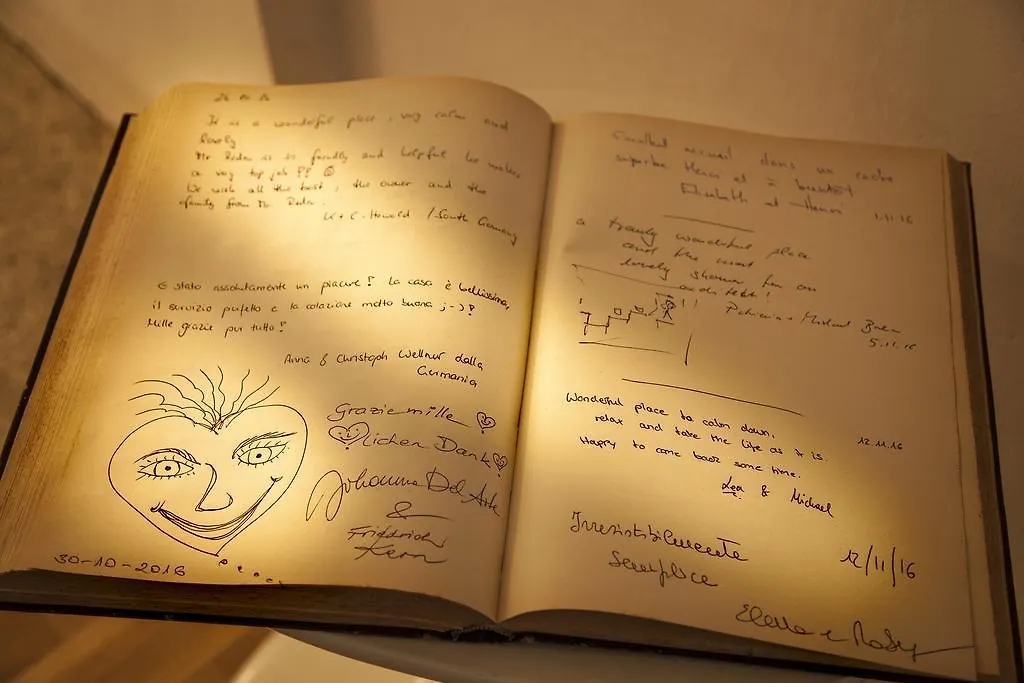 It is a wonderful place, very calm and
lovely
Mr is so friendly and helpful he makes
a very top job !! ☺
We wish all the best, the owner and the
family from Mr
K + C. Howald / South Germany
È stato assolutamente un piacere! La casa è bellissima,
il servizio perfetto e la colazione molto buona ;-)!
Mille grazie per tutto!
Anna & Christoph Wellner dalla
Germania
Grazie mille
lichen Dank
Johanna Del Arte
&
Friedrich
Kern
30-10-2016
accueil dans un cadre
superbe Merci et à bientôt
Elisabeth et Henri 1.11.16
a truly wonderful place
and the most
lovely shower for an
!
Patricia + Michael
5.11.16
Wonderful place to calm down,
relax and take the life as it is. 12.11.16
Happy to come back some time.
Lea & Michael
Irresistibilmente
Semplice 12/11/16
Elena e